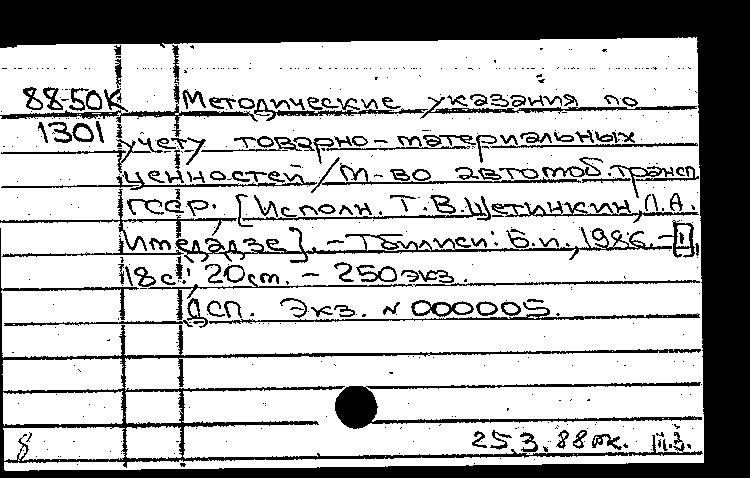 88-50К Методические указания по
1301 учету товарно-материальных
ценностей / М-во автомоб. трансп.
ГССР. [Исполн. Т.В. Щетинкин, Л.А.
Имедадзе]. - Тбилиси: Б.и., 1986. - II,
18 с.; 20 см. - 250 экз.
ДСП. Экз. N 000005.
8 25.3.88